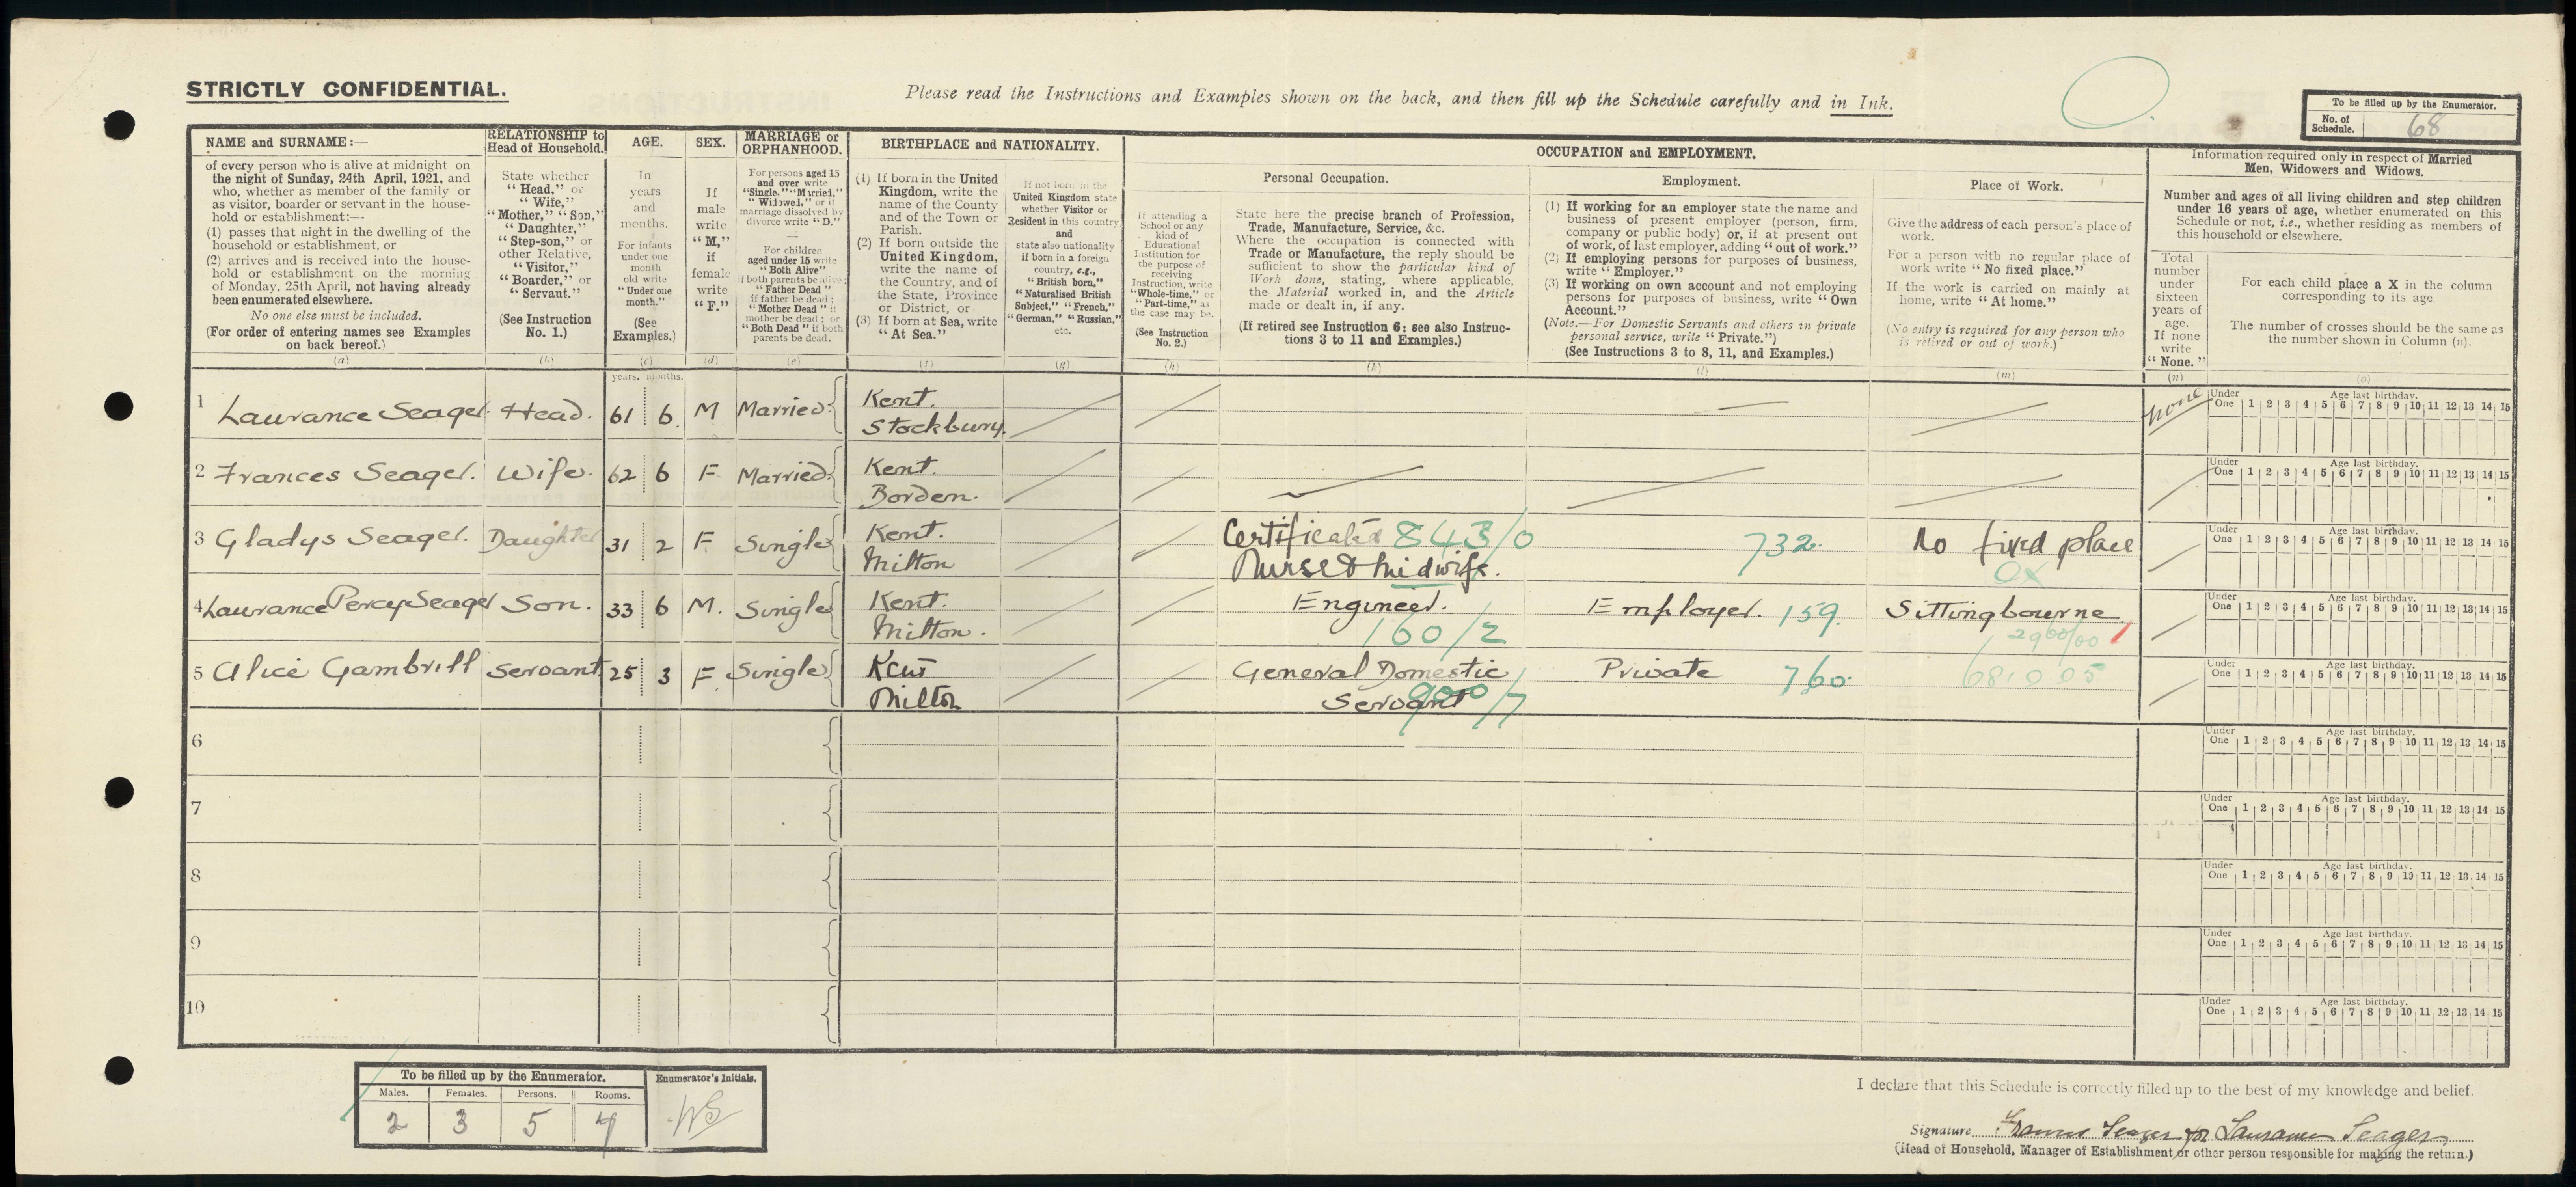 STRICTLY CONFIDENTIAL.
Please read the Instructions and Examples shown on the back, and then fill up the Schedule carefully and in Ink.
To be filled up by the Enumerator.
No. of Schedule. 68
NAME and SURNAME:—
of every person who is alive at midnight on
the night of Sunday, 24th April, 1921, and
who, whether as member of the family or
as visitor, boarder or servant in the house-
hold or establishment:—
(1) passes that night in the dwelling of the
household or establishment, or
(2) arrives and is received into the house-
hold or establishment on the morning
of Monday, 25th April, not having already
been enumerated elsewhere.
No one else must be included.
(For order of entering names see Examples
on back hereof.)
(a)
RELATIONSHIP to
Head of Household.
State whether
"Head," or
"Wife,"
"Mother," "Son,"
"Daughter,"
"Step-son," or
other Relative,
"Visitor,"
"Boarder," or
"Servant."
(See Instruction
No. 1.)
(b)
AGE.
In
years
and
months.
For infants
under one
month
old write
"Under one
month."
(See
Examples.)
(c)
SEX.
If
male
write
"M,"
if
female
write
"F."
(d)
MARRIAGE or
ORPHANHOOD.
For persons aged 15
and over write
"Single," "Married,"
"Widowed," or if
marriage dissolved by
divorce write "D."
—
For children
aged under 15 write
"Both Alive"
if both parents be alive;
"Father Dead"
if father be dead;
"Mother Dead" if
mother be dead; or
"Both Dead" if both
parents be dead.
(e)
BIRTHPLACE and NATIONALITY.
(1) If born in the United
Kingdom, write the
name of the County
and of the Town or
Parish.
(2) If born outside the
United Kingdom,
write the name of
the Country, and of
the State, Province
or District, or
(3) If born at Sea, write
"At Sea."
(f)
If not born in the
United Kingdom state
whether Visitor or
Resident in this country
and
state also nationality
if born in a foreign
country, e.g.,
"British born,"
"Naturalised British
Subject," "French,"
"German," "Russian,"
etc.
(g)
OCCUPATION and EMPLOYMENT.
If attending a
School or any
kind of
Educational
Institution for
the purpose of
receiving
Instruction, write
"Whole-time," or
"Part-time," as
the case may be.
(See Instruction
No. 2.)
(h)
Personal Occupation.
State here the precise branch of Profession,
Trade, Manufacture, Service, &c.
Where the occupation is connected with
Trade or Manufacture, the reply should be
sufficient to show the particular kind of
Work done, stating, where applicable,
the Material worked in, and the Article
made or dealt in, if any.
(If retired see Instruction 6; see also Instruc-
tions 3 to 11 and Examples.)
(k)
Employment.
(1) If working for an employer state the name and
business of present employer (person, firm,
company or public body) or, if at present out
of work, of last employer, adding "out of work."
(2) If employing persons for purposes of business,
write "Employer."
(3) If working on own account and not employing
persons for purposes of business, write "Own
Account."
(Note.—For Domestic Servants and others in private
personal service, write "Private.")
(See Instructions 3 to 8, 11, and Examples.)
(l)
Place of Work.
Give the address of each person's place of
work.
For a person with no regular place of
work write "No fixed place."
If the work is carried on mainly at
home, write "At home."
(No entry is required for any person who
is retired or out of work.)
(m)
Information required only in respect of Married
Men, Widowers and Widows.
Number and ages of all living children and step children
under 16 years of age, whether enumerated on this
Schedule or not, i.e., whether residing as members of
this household or elsewhere.
Total
number
under
sixteen
years of
age.
If none
write
"None."
(n)
For each child place a X in the column
corresponding to its age.
The number of crosses should be the same as
the number shown in Column (n).
(o)
years. months.
1 Laurance Seager. Head. 61 6 M Married. Kent. Stockbury. none
Under One Age last birthday. 1 2 3 4 5 6 7 8 9 10 11 12 13 14 15
2 Frances Seager. Wife. 62 6 F Married. Kent. Borden.
Under One Age last birthday. 1 2 3 4 5 6 7 8 9 10 11 12 13 14 15
3 Gladys Seager. Daughter 31 2 F Single Kent. Milton Certificated 843/0 Nurse & Midwife. 732. No fixed place OX
Under One Age last birthday. 1 2 3 4 5 6 7 8 9 10 11 12 13 14 15
4 Laurance Percy Seager Son. 33 6 M. Single Kent. Milton. Engineer. 160/2 Employer. 159. Sittingbourne
Under One Age last birthday. 1 2 3 4 5 6 7 8 9 10 11 12 13 14 15
5 Alice Gambrill Servant 25 3 F Single Kent Milton General Domestic Servant 900/7 Private 760.
Under One Age last birthday. 1 2 3 4 5 6 7 8 9 10 11 12 13 14 15
6
Under One Age last birthday. 1 2 3 4 5 6 7 8 9 10 11 12 13 14 15
7
Under One Age last birthday. 1 2 3 4 5 6 7 8 9 10 11 12 13 14 15
8
Under One Age last birthday. 1 2 3 4 5 6 7 8 9 10 11 12 13 14 15
9
Under One Age last birthday. 1 2 3 4 5 6 7 8 9 10 11 12 13 14 15
10
Under One Age last birthday. 1 2 3 4 5 6 7 8 9 10 11 12 13 14 15
To be filled up by the Enumerator.
Males. Females. Persons. Rooms.
2 3 5 7
Enumerator's Initials.
WS
I declare that this Schedule is correctly filled up to the best of my knowledge and belief.
Signature Frances Seager for Laurance Seager
(Head of Household, Manager of Establishment or other person responsible for making the return.)